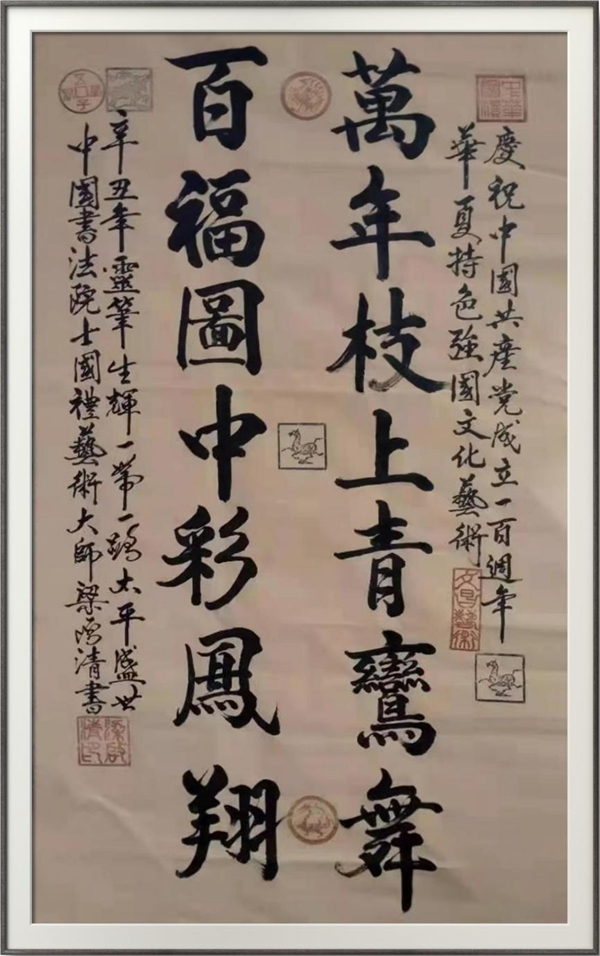 慶祝中國共產党成立一百週年
華夏持色強國文化藝術
萬年枝上青鸞舞
百福圖中彩鳳翔
辛丑年靈筆生輝一帶一路太平盛世
中國書法院士國禮藝術大師梁啓清書